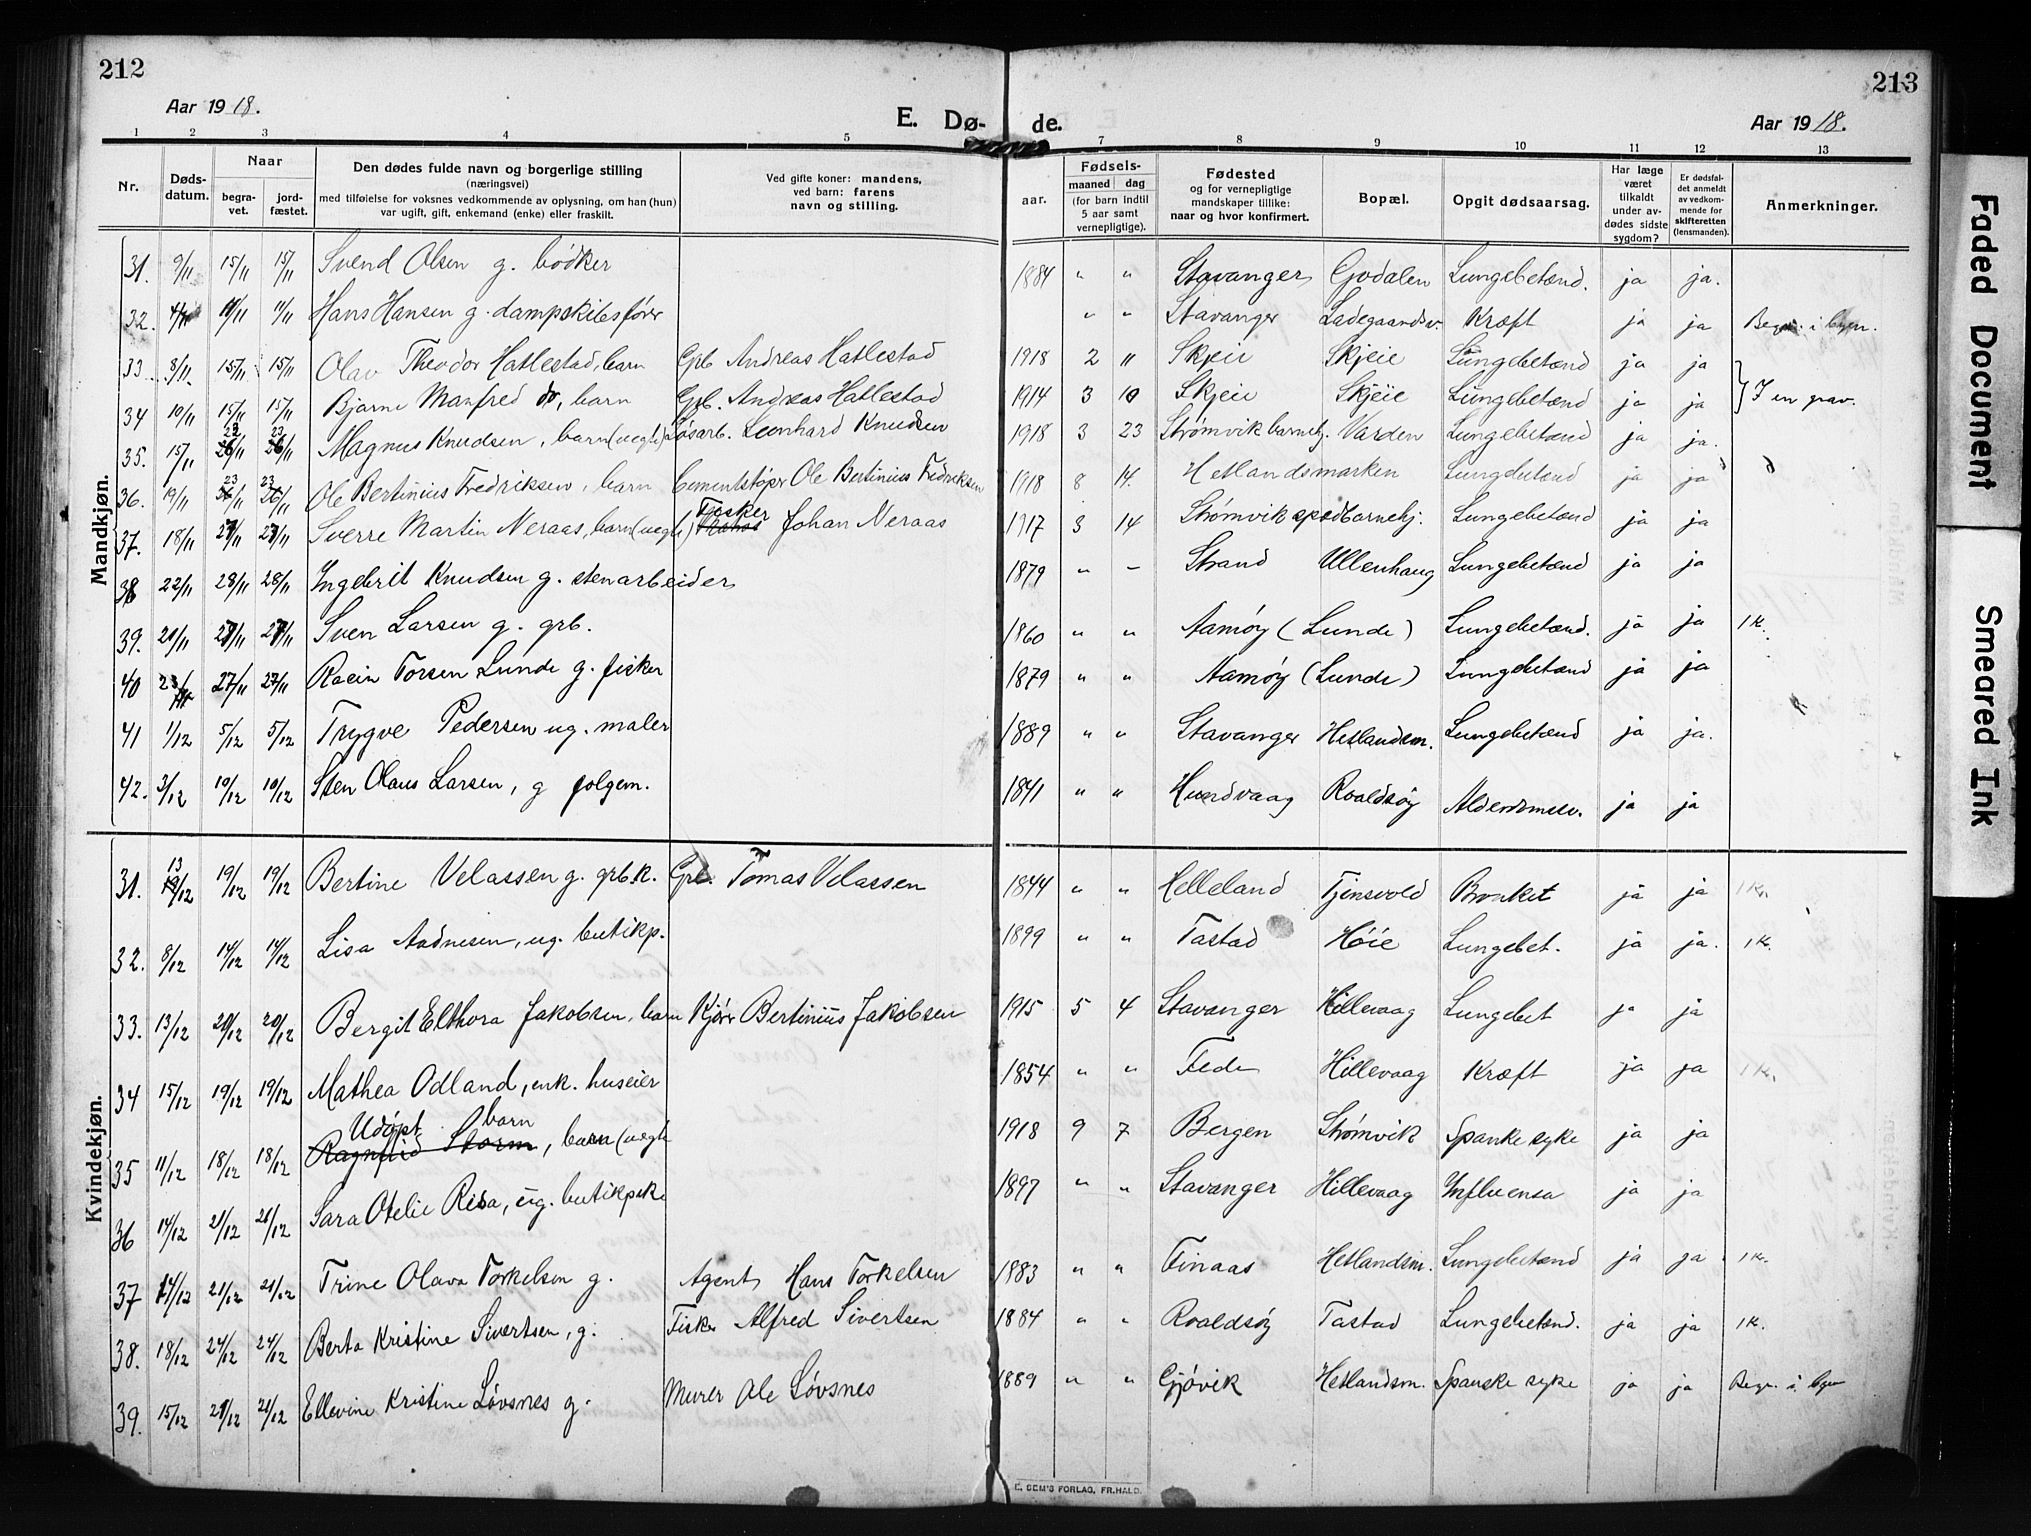 212
213
Aar 1918.
E. Dø- de.
Aar 1918.
1 2 3 4 5 7 8 9 10 11 12 13
Nr.
Døds-datum.
Naar
begra-vet.
jord-fæstet.
Den dødes fulde navn og borgerlige stilling
(næringsvei)
med tilføielse for voksnes vedkommende av oplysning, om han (hun)
var ugift, gift, enkemand (enke) eller fraskilt.
Ved gifte koner: mandens,
ved barn: farens
navn og stilling.
Fødsels-
aar. maaned dag
(for barn indtil
5 aar samt
vernepligtige).
Fødested
og for vernepligtige
mandskaper tillike:
naar og hvor konfirmert.
Bopæl.
Opgit dødsaarsag.
Har læge
været
tilkaldt
under av-
dødes sidste
sygdom?
Er dødsfal-
det anmeldt
av vedkom-
mende for
skifteretten
(lensmanden).
Anmerkninger.
Mandkjøn.
31. 9/11 15/11 15/11 Svend Olsen g. bødker 1884 " " Stavanger Godalen Lungebetænd. ja ja.
32. 11/11 11/11 Hans Hansen g. dampskibsfører " " Stavanger Ladegaardsv. Kræft ja ja Begr. i byen.
33. 8/11 15/11 15/11 Olav Theodor Hatlestad, barn Grb. Andreas Hatlestad 1918 2 " Skjeie Skjeie Lungebetænd ja ja
34 10/11 15/11 15/11 Bjarne Manfred do, barn Grb. Andreas Hatlestad 1914 3 10 Skjeie Skjeie Lungebetænd ja ja } I en grav.
35. 15/11 23 23 Magnus Knudsen, barn (uegte) Løsarb. Leonhard Knudsen 1918 3 23 Strømvik barnehj. Varden Lungebetænd ja ja.
36. 19/11 23 23 Ole Bertinius Fredriksen, barn Cementstøper Ole Bertinius Fredriksen 1918 8 14. Hetlandsmarken Lungebetænd ja ja
37. 18/11 27/11 27/11 Sverre Martin Neraas, barn (uegte) Fisker Johan Neraas 1917 3 14 Strømvik spedbarnehj. Lungebetænd ja ja
38 22/11 28/11 28/11 Ingebrit Knudsen g. stenarbeider 1879 " – Strand Ullenhaug Lungebetænd ja ja
39. 21/11 27/11 27/11 Sven Larsen g. grb. 1860 " " Aamøy (Lunde) Lungebetænd. ja ja 1 K.
40 23/11 27/11 27/11 Torsen Lunde g. fisker 1879 " " Aamøy (Lunde) Lungebetænd ja ja
41 1/12 5/12 5/12 Trygve Pedersen ug. maler 1889 " " Stavanger Hetlandsm. Lungebetænd ja ja.
42. 3/12 10/12 10/12 Sten Olaus Larsen, g folgem. 1841 " " Hundvaag Roaldsøy Alderdomssv. ja ja
Kvindekjøn.
31. 13/12 19/12 19/12 Bertine Velassen g. grb.k. Grb. Tomas Velassen 1844 " " Helleland Tjensvold Bronkit ja ja 1 K.
32. 8/12 14/12 14/12 Lisa Aadnesen, ug. butikp. 1899 " " Tastad Høie Lungebet. ja ja. 1 K.
33. 13/12 20/12 20/12 Bergit Elthora Jakobsen, barn Kjører Bertinius Jakobsen 1915 5 4 Stavanger Hillevaag Lungebet ja ja
34 15/12 19/12 19/12 Mathea Odland, enk. huseier 1854 " " Fede Hillevaag Kræft ja ja 1 K.
Udøpt barn
35 11/12 18/12 18/12 Ragnfrid Storm, barn (uegte 1918 9 7 Bergen Strømvik Spanke syke ja ja
36 14/12 21/12 21/12 Sara Otelie Risa, ug. butikpike 1897 " " Stavanger Hillevaag Influensa ja ja
37 14/12 21/12 21/12 Trine Olava Torkelsen g. Agent Hans Torkelsen 1883 " " Finaas Hetlandsm. Lungebetænd ja ja 1 K.
38. 18/12 24/12 24/12 Berta Kristine Sivertsen, g. Fisker Alfred Sivertsen 1884 " " Roaldsøy Tastad Lungebetænd. ja ja 1 K.
39. 15/12 21/12 21/12 Ellevine Kristine Løvsnes g. Murer Ole Løvsnes 1889 " " Gjøvik Hetlandsm. Spanske syke ja ja Begr. i byen
E. SEM'S FORLAG, FR.HALD.
Faded Document
Smeared Ink